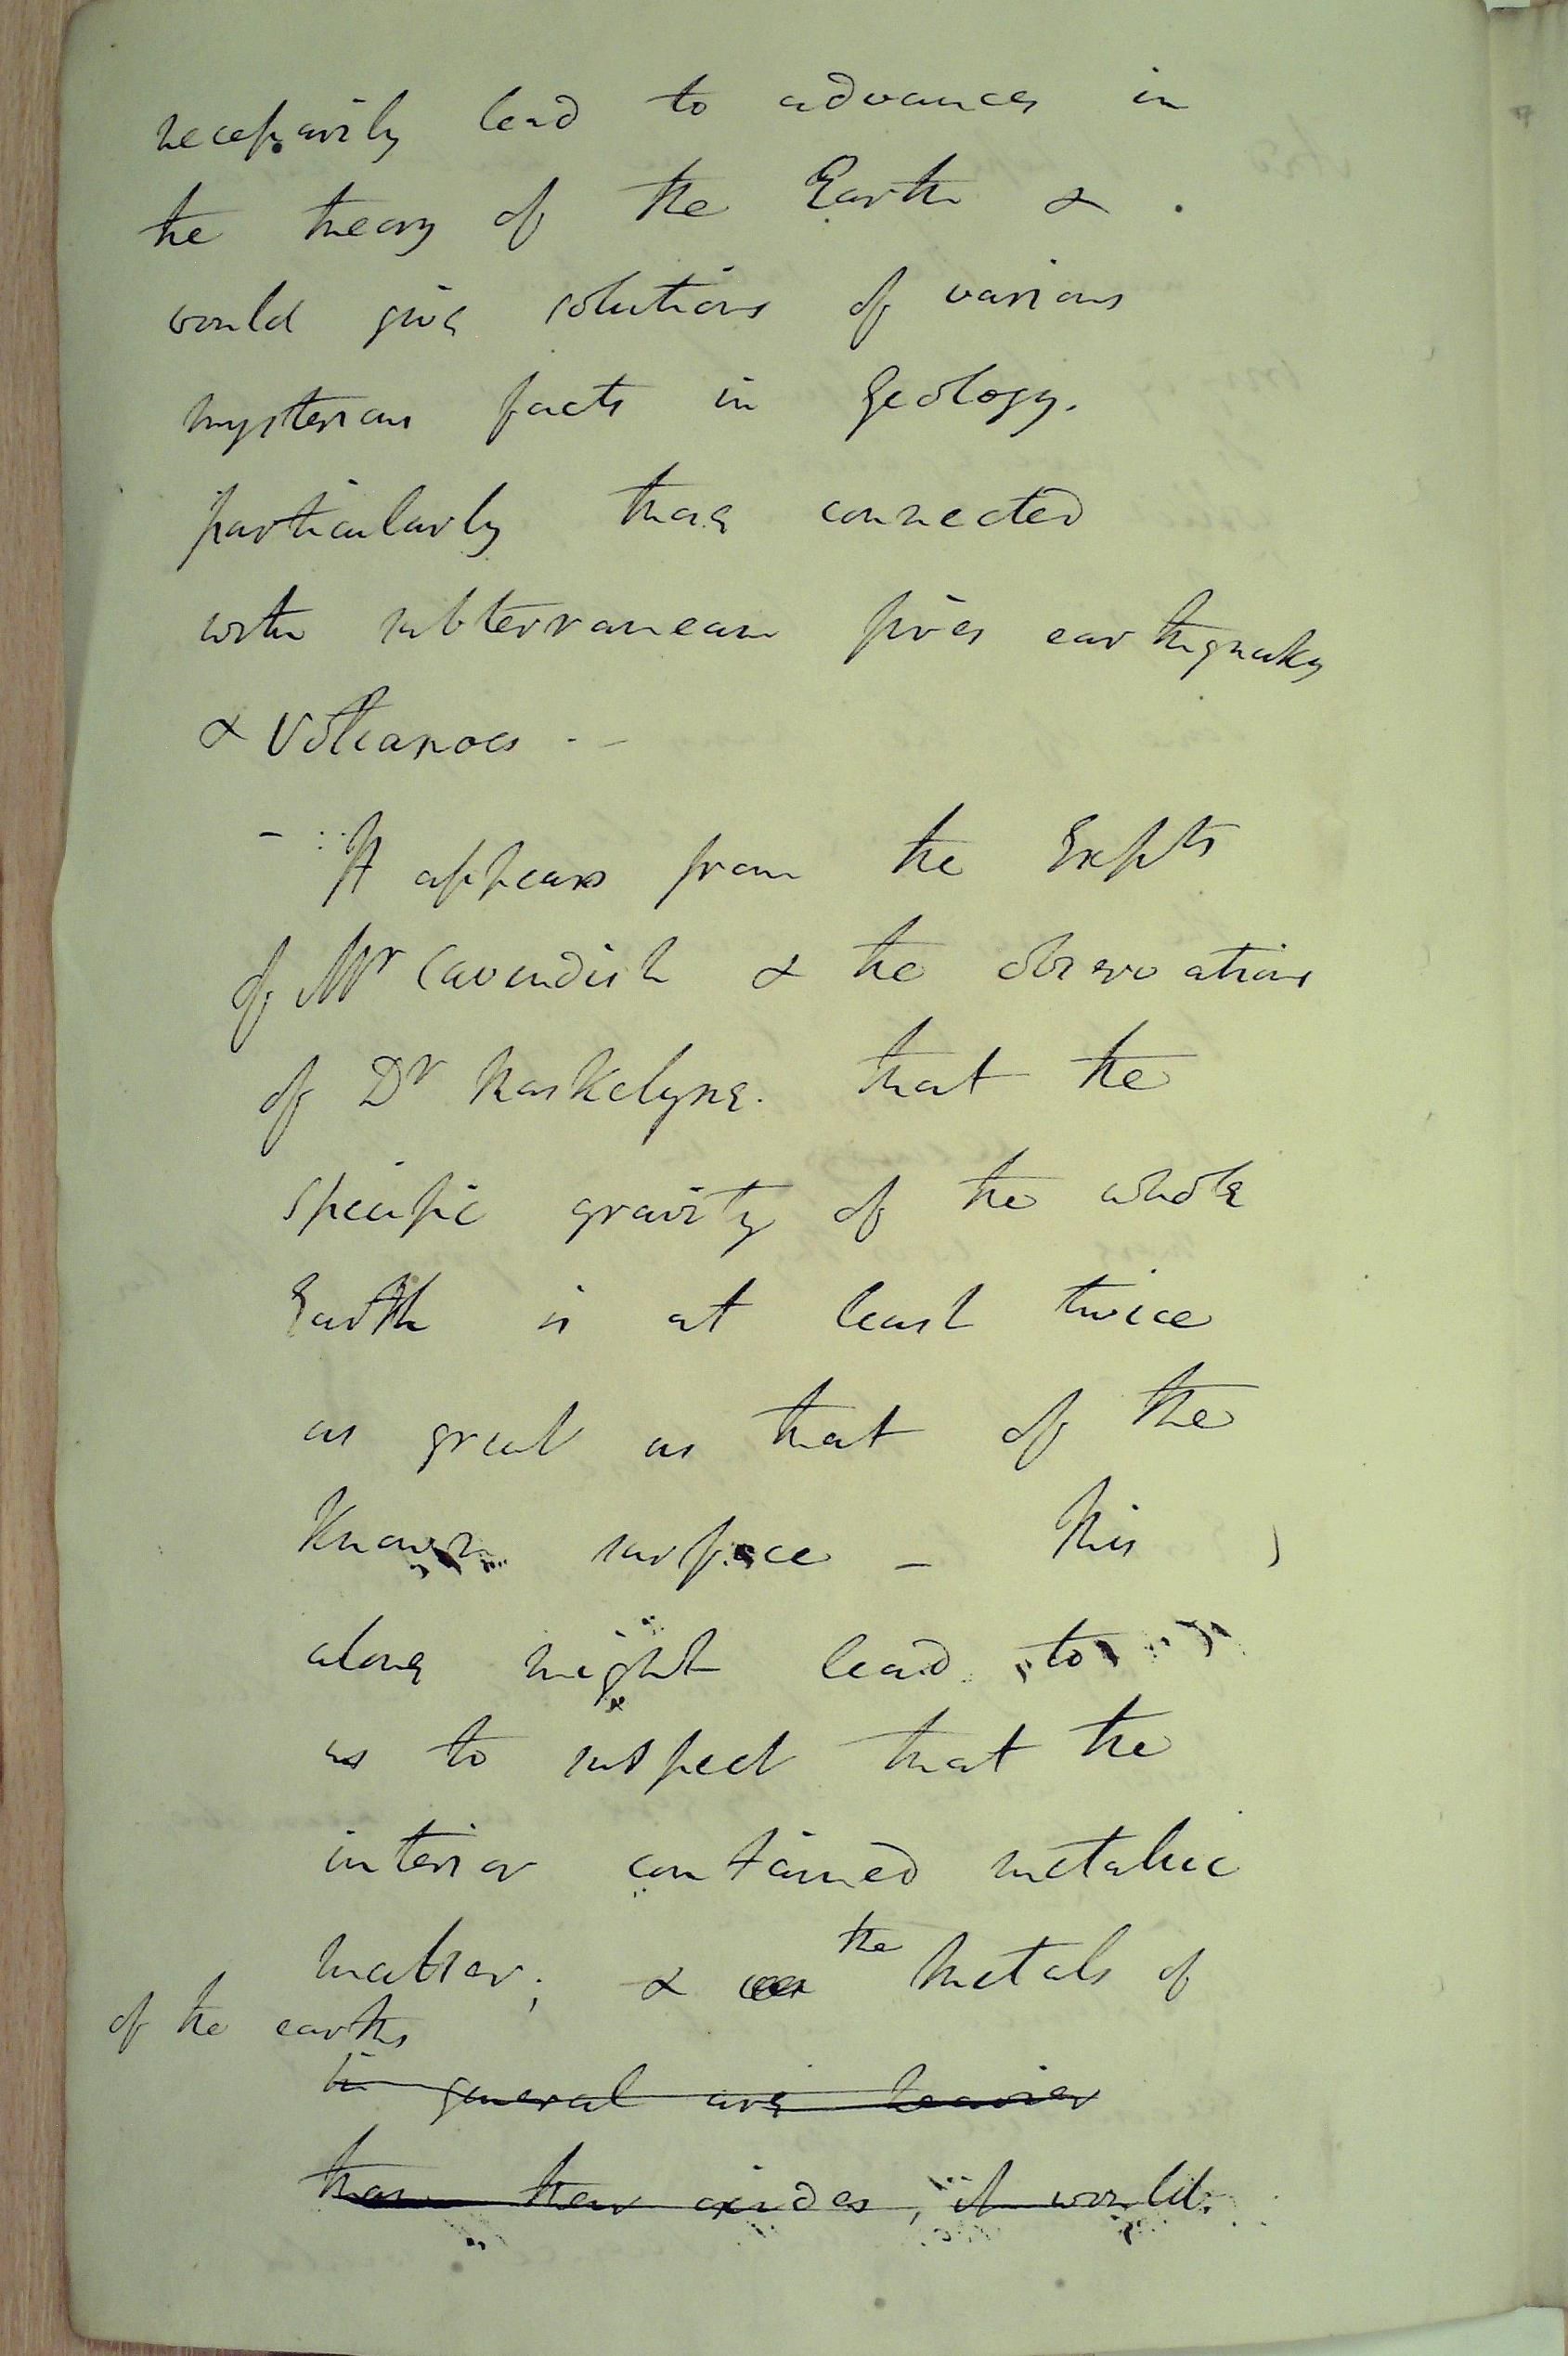 necessarily lead to advances in
the theory of the Earth &
would give solutions of various
mysterious facts in Geology.
particularly those connected
with subterranean fires earthquakes
& Volcanoes. -
- It appears from the Exp^ts
of M^r Cavendish & the observations
of D^r Maskelyne. that the
specific gravity of the whole
Earth is at least twice
as great as that of the
known surface - this
alone might lead to
us to suspect that the
interior contained metallic
matter; & the metals of
of the earths
in general are heavier
than their oxides, it would